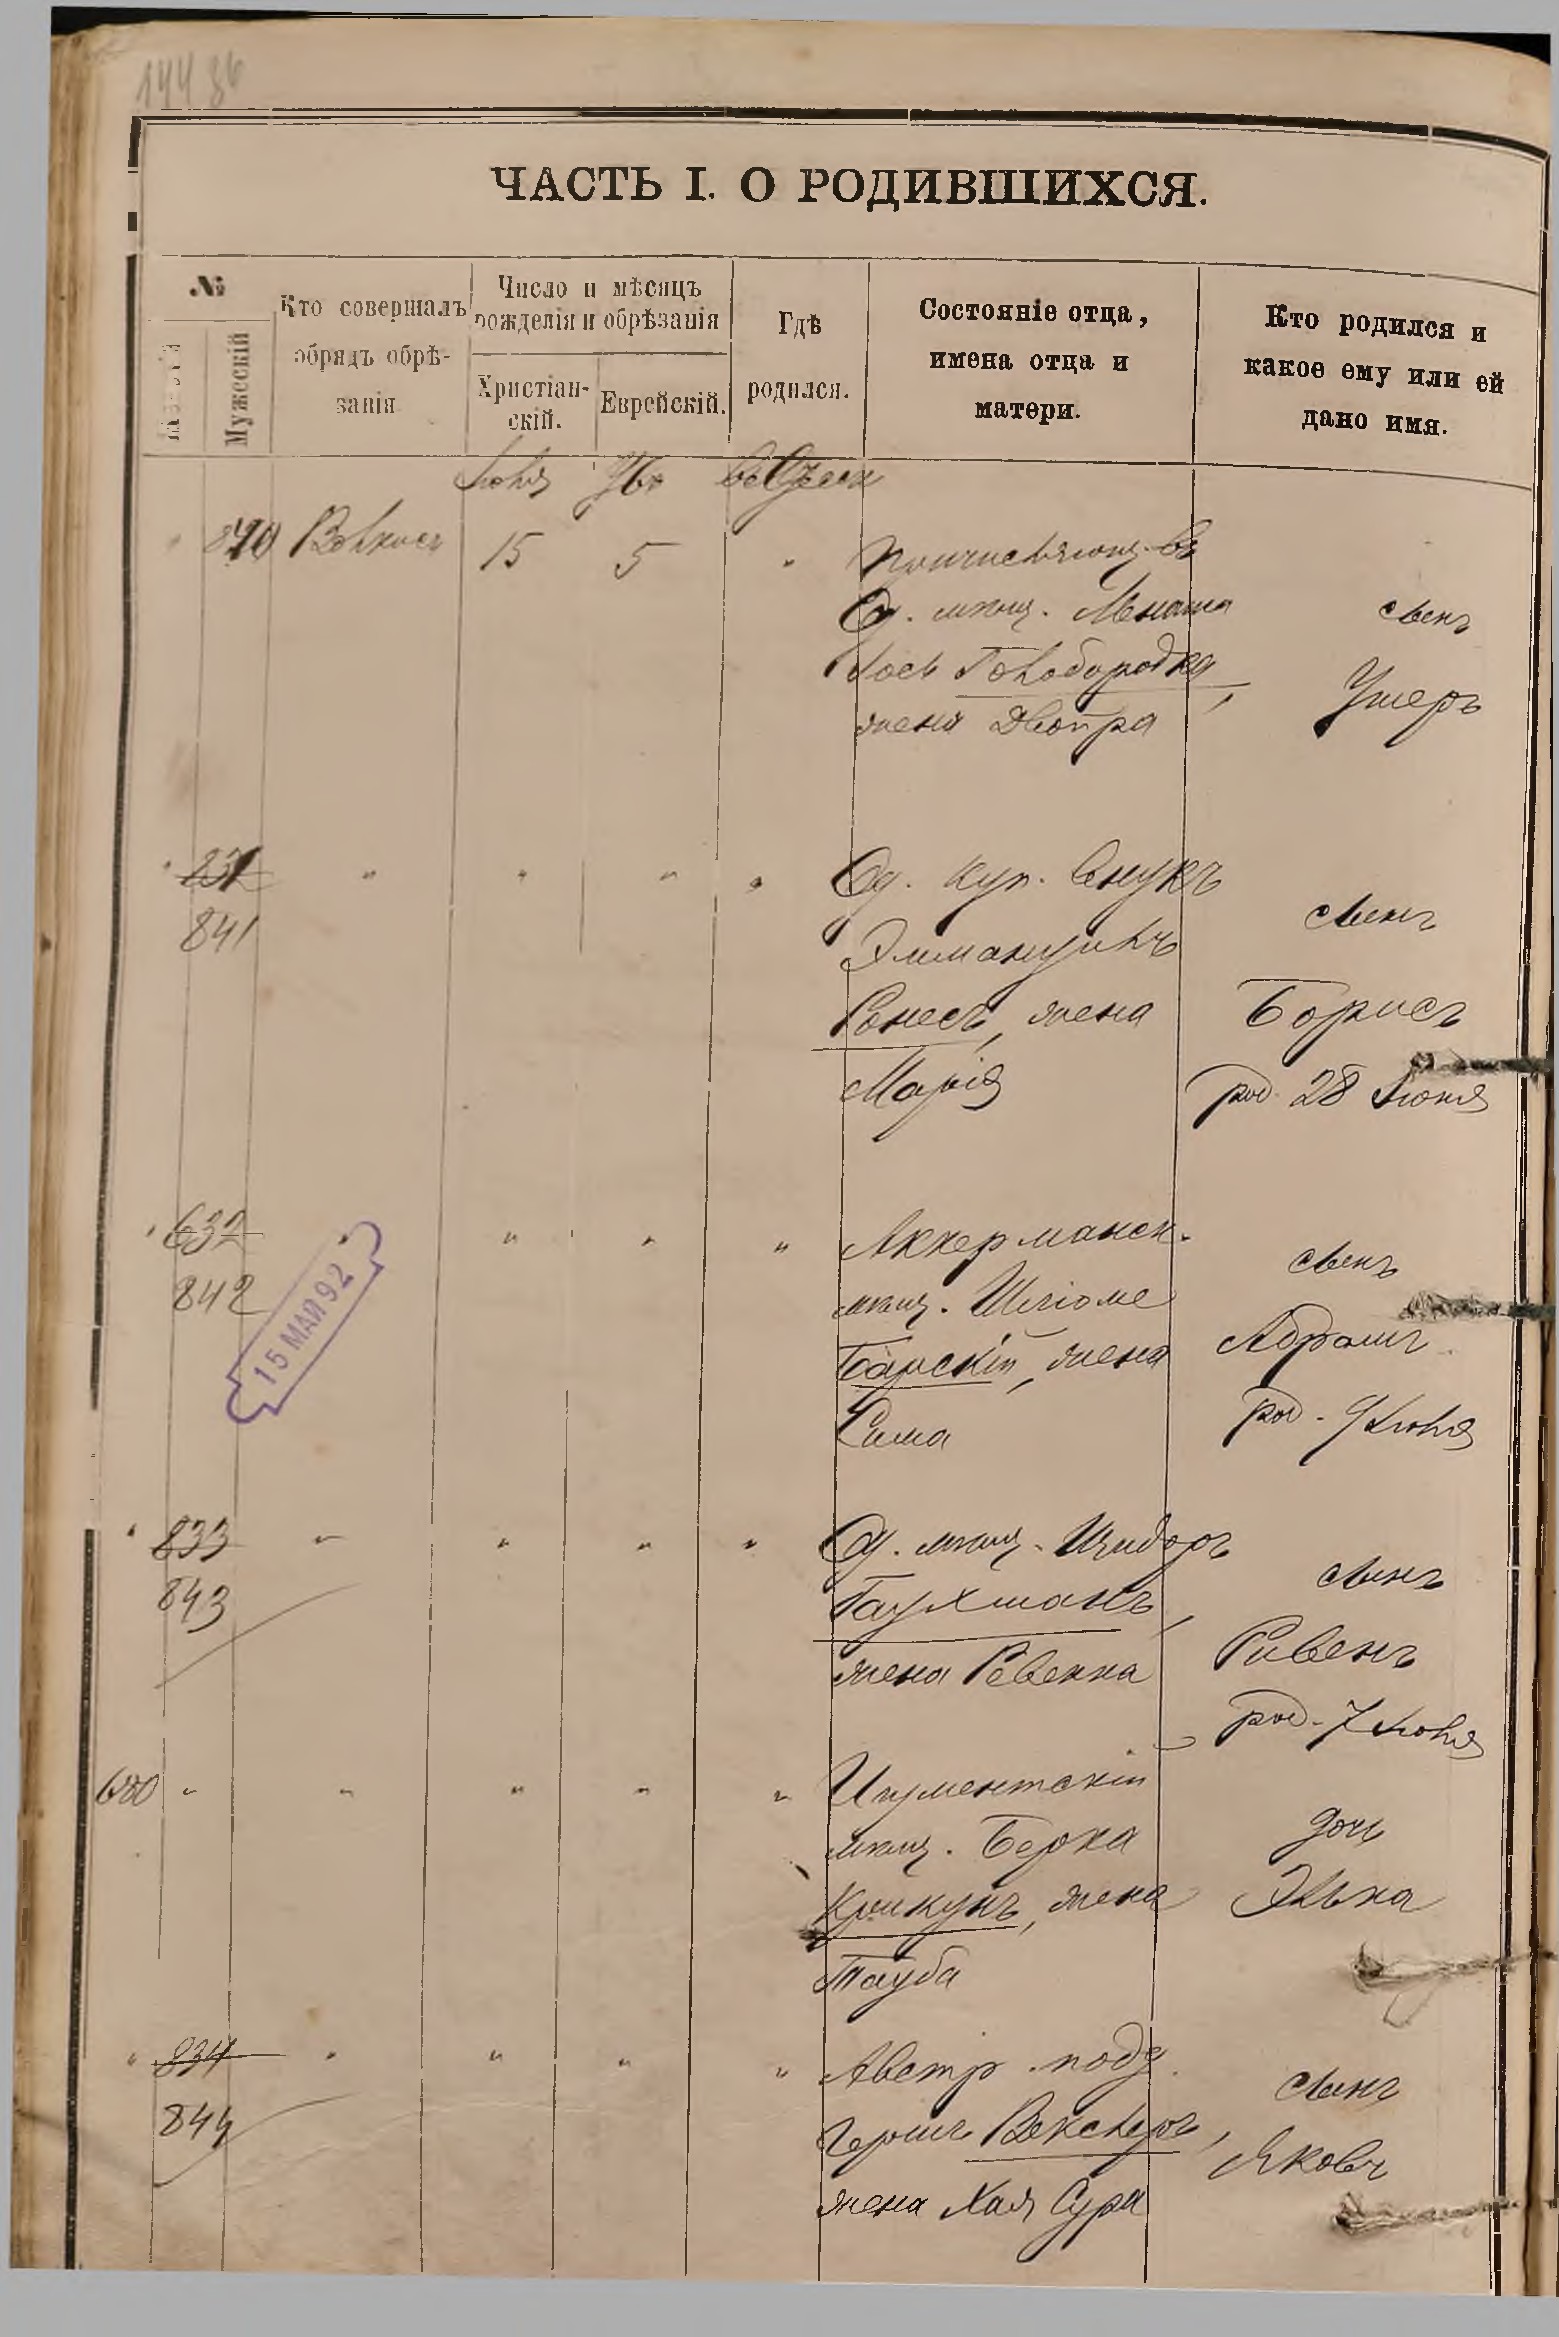 144 86
ЧАСТЬ I. О РОДИВШИХСЯ.
№
Мужескій
Кто совершалъ
обрядъ обрѣ-
занія
Число и мѣсяцъ
рожденія и обрѣзанія
Христіан-
скій.
Еврейскій.
Гдѣ
родился.
Состояніе отца,
имена отца и
матери.
Кто родился и
какое ему или ей
дано имя.
Іюля Абъ въ Одессѣ
840 15 5 " причисляющ. въ
Од. мѣщ. Менаша
Іось Голобородка,
жена Двойра
сынъ
Ушеръ
831
841
" " " " Од. куп. внукъ
Эммануилъ
Ронесъ, жена
Марія
сынъ
Борисъ
род. 28 Іюня
632
842
15 МАЙ 92
" " " Аккерманск.
мѣщ. Шліоме
Барскій, жена
Сима
сынъ
Абрамъ
род. 9 Іюля
833
843
" " " " Од. мѣщ. Изидоръ
Гаухманъ,
жена Ревекка
сынъ
Рувенъ
род. 7 Іюля
" " " " " Игуменскій
мѣщ. Берка
Крикунъ, жена
Тауба
дочь
Элька
834
844
" " " " Австр. подд.
Гершъ Векслеръ,
жена Хая Сура
сынъ
Яковъ